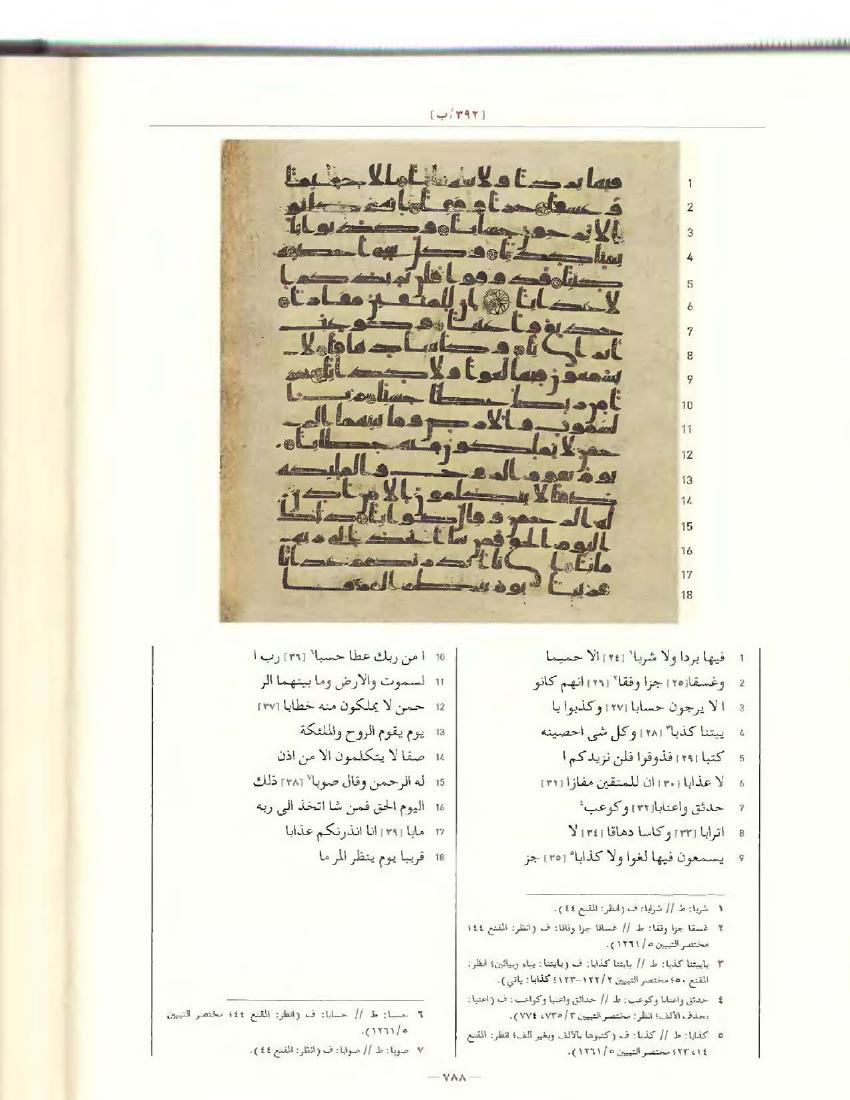 [٣٩٢/ب]
1 فيها بردا ولا شربا١ [٢٤] الا حميما
2 وغسقا [٢٥] جزا وفقا٢ [٢٦] انهم كانو
3 ا لا يرجون حسابا [٢٧] وكذبوا با
4 ييتنا كذبا٣ [٢٨] وكل شى احصينه
5 كتبا [٢٩] فذوقوا فلن نزيدكم ا
6 لا عذابا [٣٠] ان للمتقين مفازا [٣١]
7 حدئق واعنابا [٣٢] وكوعب٤
8 اترابا [٣٣] وكاسا دهاقا [٣٤] لا
9 يسمعون فيها لغوا ولا كذابا٥ [٣٥] جز
10 ا من ربك عطا حسبا٦ [٣٦] رب ا
11 لسموت والارض وما بينهما الر
12 حمن لا يملكون منه خطابا [٣٧]
13 يوم يقوم الروح والملئكة
14 صفا لا يتكلمون الا من اذن
15 له الرحمن وقال صوبا٧ [٣٨] ذلك
16 اليوم الحق فمن شا اتخذ الى ربه
17 مابا [٣٩] انا انذرنكم عذابا
18 قريبا يوم ينظر المر ما
١ شربا: ط // شرابا: ف (انظر: المقنع ٤٤).
٢ غسقا جزا وفقا: ط // غساقا جزا وفاقا: ف (انظر: المقنع ٤٤؛
مختصر التبيين ١٢٦١/٥).
٣ باييتنا كذبا: ط // بايتنا كذابا: ف (بايتنا: بياء وبيائين؛ انظر:
المقنع ٥٠؛ مختصر التبيين ١٢٢/٢-١٢٣؛ كذابا: ياتي).
٤ حدئق واعنابا وكوعب: ط // حدائق واعنبا وكواعب: ف (اعنبا:
بحذف الألف؛ انظر: مختصر التبيين ٧٣٥/٣، ٧٧٤).
٥ كذابا: ط // كذبا: ف (كتبوها بالألف وبغير الف؛ انظر: المقنع
١٤، ٢٣؛ مختصر التبيين ١٢٦١/٥).
٦ حسبا: ط // حسابا: ف (انظر: المقنع ٤٤؛ مختصر التبيين
١٢٦١/٥).
٧ صوبا: ط // صوابا: ف (انظر: المقنع ٤٤).
— ٧٨٨ —